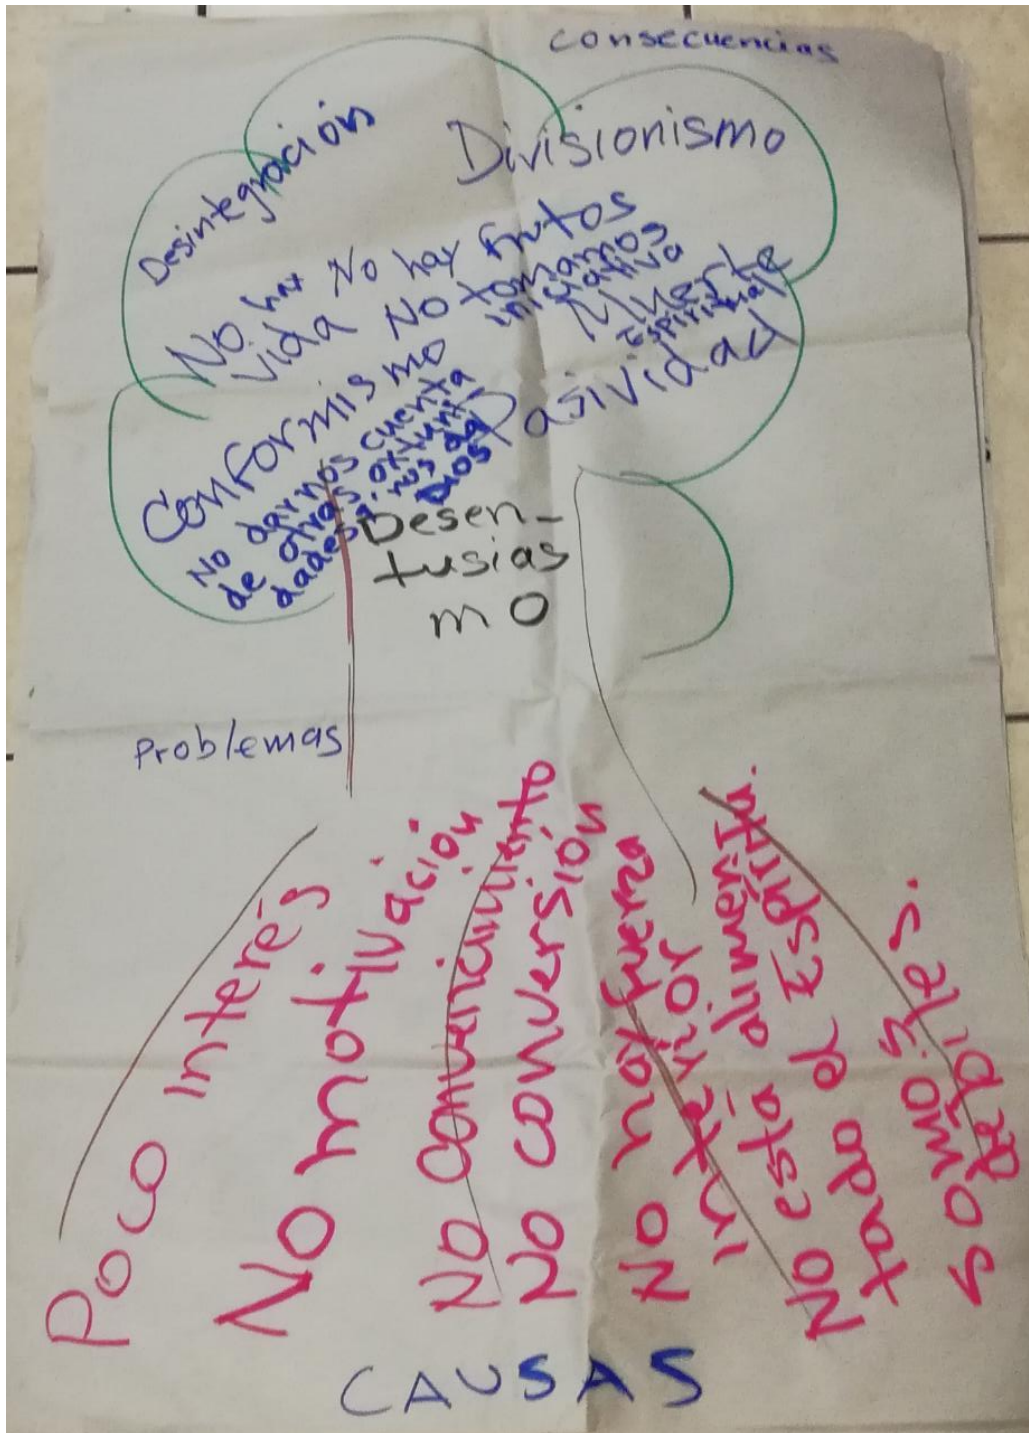 consecuencias
Desintegración
Divisionismo
No hay
vida
No hay frutos
No tomamos
iniciativa
Muerte
espiritual
Conformismo
Pasividad
No darnos cuenta
de otras
dades nos da
Dios
Desen-
tusias
mo
Problemas
Poco interés
No motivación
No convencimiento
No conversión
No hay fuerza
interior
No está alimen
tado el Espíritu.
somos
débiles.
CAUSAS